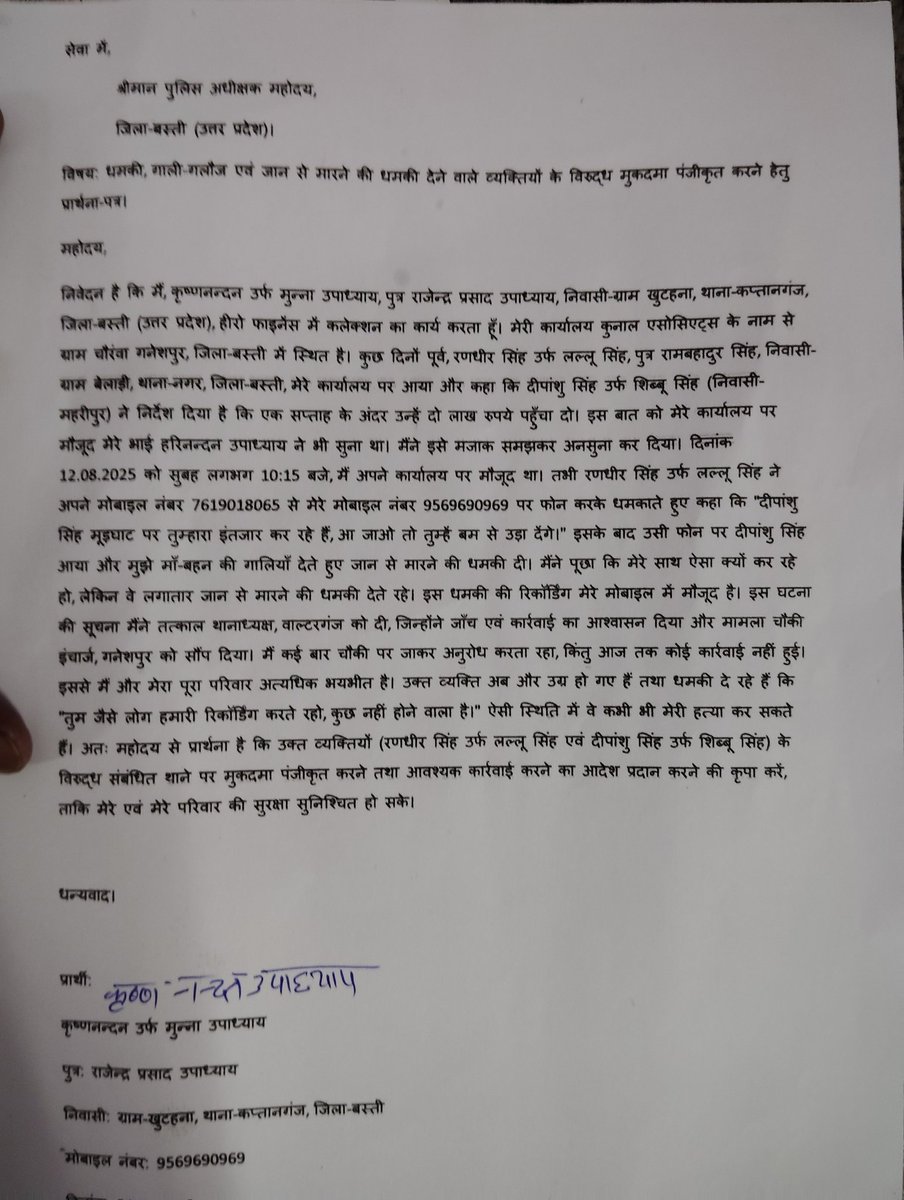 सेवा में,
श्रीमान पुलिस अधीक्षक महोदय,
जिला-बस्ती (उत्तर प्रदेश)।
विषय: धमकी, गाली-गलौज एवं जान से मारने की धमकी देने वाले व्यक्तियों के विरुद्ध मुकदमा पंजीकृत करने हेतु
प्रार्थना-पत्र।
महोदय,
निवेदन है कि मैं, कृष्णनन्दन उर्फ मुन्ना उपाध्याय, पुत्र राजेन्द्र प्रसाद उपाध्याय, निवासी-ग्राम खुटहना, थाना-कप्तानगंज,
जिला-बस्ती (उत्तर प्रदेश), हीरो फाइनेंस में कलेक्शन का कार्य करता हूँ। मेरी कार्यालय कुनाल एसोसिएट्स के नाम से
ग्राम चौरवा गनेशपुर, जिला-बस्ती में स्थित है। कुछ दिनों पूर्व, रणधीर सिंह उर्फ लल्लू सिंह, पुत्र रामबहादुर सिंह, निवासी-
ग्राम बेलाड़ी, थाना-नगर, जिला-बस्ती, मेरे कार्यालय पर आया और कहा कि दीपांशु सिंह उर्फ शिब्बू सिंह (निवासी-
महरीपुर) ने निर्देश दिया है कि एक सप्ताह के अंदर उन्हें दो लाख रुपये पहुँचा दो। इस बात को मेरे कार्यालय पर
मौजूद मेरे भाई हरिनन्दन उपाध्याय ने भी सुना था। मैंने इसे मजाक समझकर अनसुना कर दिया। दिनांक
12.08.2025 को सुबह लगभग 10:15 बजे, मैं अपने कार्यालय पर मौजूद था। तभी रणधीर सिंह उर्फ लल्लू सिंह ने
अपने मोबाइल नंबर 7619018065 से मेरे मोबाइल नंबर 9569690969 पर फोन करके धमकाते हुए कहा कि "दीपांशु
सिंह मूड़घाट पर तुम्हारा इंतजार कर रहे हैं, आ जाओ तो तुम्हें बम से उड़ा देंगे।" इसके बाद उसी फोन पर दीपांशु सिंह
आया और मुझे माँ-बहन की गालियाँ देते हुए जान से मारने की धमकी दी। मैंने पूछा कि मेरे साथ ऐसा क्यों कर रहे
हो, लेकिन वे लगातार जान से मारने की धमकी देते रहे। इस धमकी की रिकॉर्डिंग मेरे मोबाइल में मौजूद है। इस घटना
की सूचना मैंने तत्काल थानाध्यक्ष, वाल्टरगंज को दी, जिन्होंने जाँच एवं कार्रवाई का आश्वासन दिया और मामला चौकी
इंचार्ज, गनेशपुर को सौंप दिया। मैं कई बार चौकी पर जाकर अनुरोध करता रहा, किंतु आज तक कोई कार्रवाई नहीं हुई।
इससे मैं और मेरा पूरा परिवार अत्यधिक भयभीत है। उक्त व्यक्ति अब और उग्र हो गए हैं तथा धमकी दे रहे हैं कि
"तुम जैसे लोग हमारी रिकॉर्डिंग करते रहो, कुछ नहीं होने वाला है।" ऐसी स्थिति में वे कभी भी मेरी हत्या कर सकते
हैं। अतः महोदय से प्रार्थना है कि उक्त व्यक्तियों (रणधीर सिंह उर्फ लल्लू सिंह एवं दीपांशु सिंह उर्फ शिब्बू सिंह) के
विरुद्ध संबंधित थाने पर मुकदमा पंजीकृत करने तथा आवश्यक कार्रवाई करने का आदेश प्रदान करने की कृपा करें,
ताकि मेरे एवं मेरे परिवार की सुरक्षा सुनिश्चित हो सके।
धन्यवाद।
प्रार्थी: कृष्ण नन्दन उपाध्याय
कृष्णनन्दन उर्फ मुन्ना उपाध्याय
पुत्र: राजेन्द्र प्रसाद उपाध्याय
निवासी: ग्राम-खुटहना, थाना-कप्तानगंज, जिला-बस्ती
मोबाइल नंबर: 9569690969